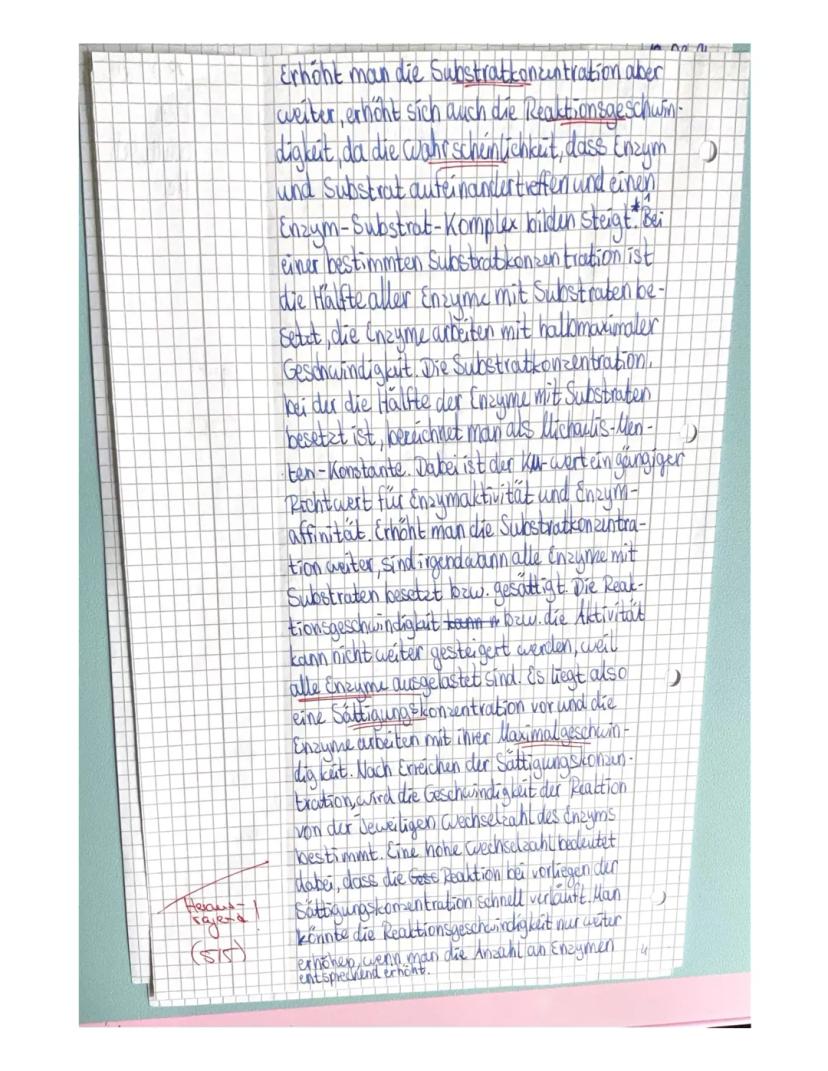 Erhöht man die Substratkonzentration aber
weiter, erhöht sich auch die Reaktionsgeschwin-
digkeit, da die Wahrscheinlichkeit, dass Enzym
und Substrat aufeinandertreffen und einen
Enzym-Substrat-Komplex bilden steigt.*1 Bei
einer bestimmten Substratkonzentration ist
die Hälfte aller Enzyme mit Substraten be-
setzt, die Enzyme arbeiten mit halbmaximaler
Geschwindigkeit. Die Substratkonzentration,
bei der die Hälfte der Enzyme mit Substraten
besetzt ist, bezeichnet man als Michaelis-Men-
ten-Konstante. Dabei ist der KM-wert ein gängiger
Richtwert für Enzymaktivität und Enzym-
affinität. Erhöht man die Substratkonzentra-
tion weiter, sind irgendwann alle Enzyme mit
Substraten besetzt bzw. gesättigt. Die Reak-
tionsgeschwindigkeit kann n bzw. die Aktivität
kann nicht weiter gesteigert werden, weil
alle Enzyme ausgelastet sind. Es liegt also
eine Sättigungskonzentration vor und die
Enzyme arbeiten mit ihrer Maximalgeschwin-
digkeit. Nach Erreichen der Sättigungskonzen-
tration, wird die Geschwindigkeit der Reaktion
von der jeweiligen Wechselzahl des Enzyms
bestimmt. Eine hohe Wechselzahl bedeutet
dabei, dass die Gess Reaktion bei vorliegen der
Sättigungskonzentration schnell verläuft. Man
könnte die Reaktionsgeschwindigkeit nur weiter
erhöhen, wenn man die Anzahl an Enzymen
entsprechend erhöht.
4
Heraus-
ragend!
(5/5)